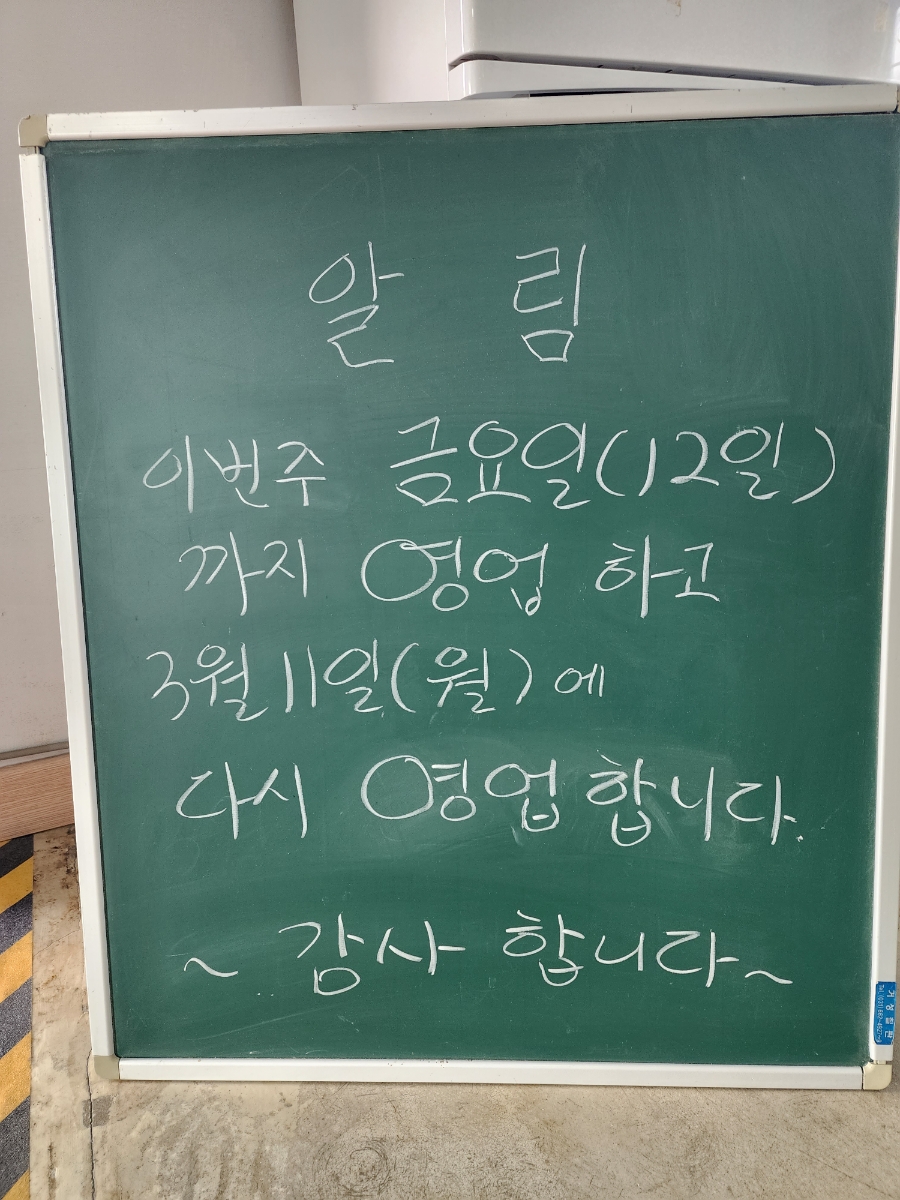 알 림
이번주 금요일(12일)
까지 영업 하고
3월 11일(월)에
다시 영업합니다.
~ 감사 합니다~